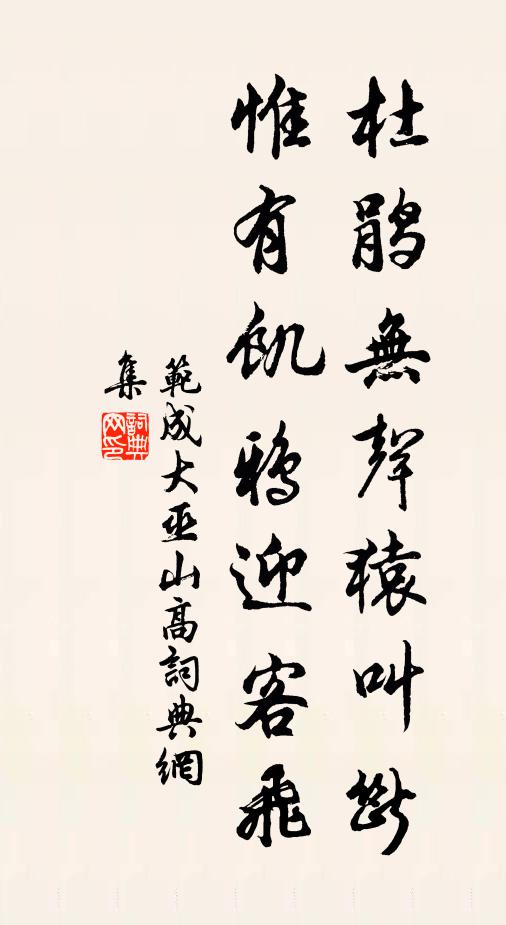 杜鹃無聲猿叫斷
惟有飢鴉迎客飛
範成大巫山高詞典網
集
詞典
网印